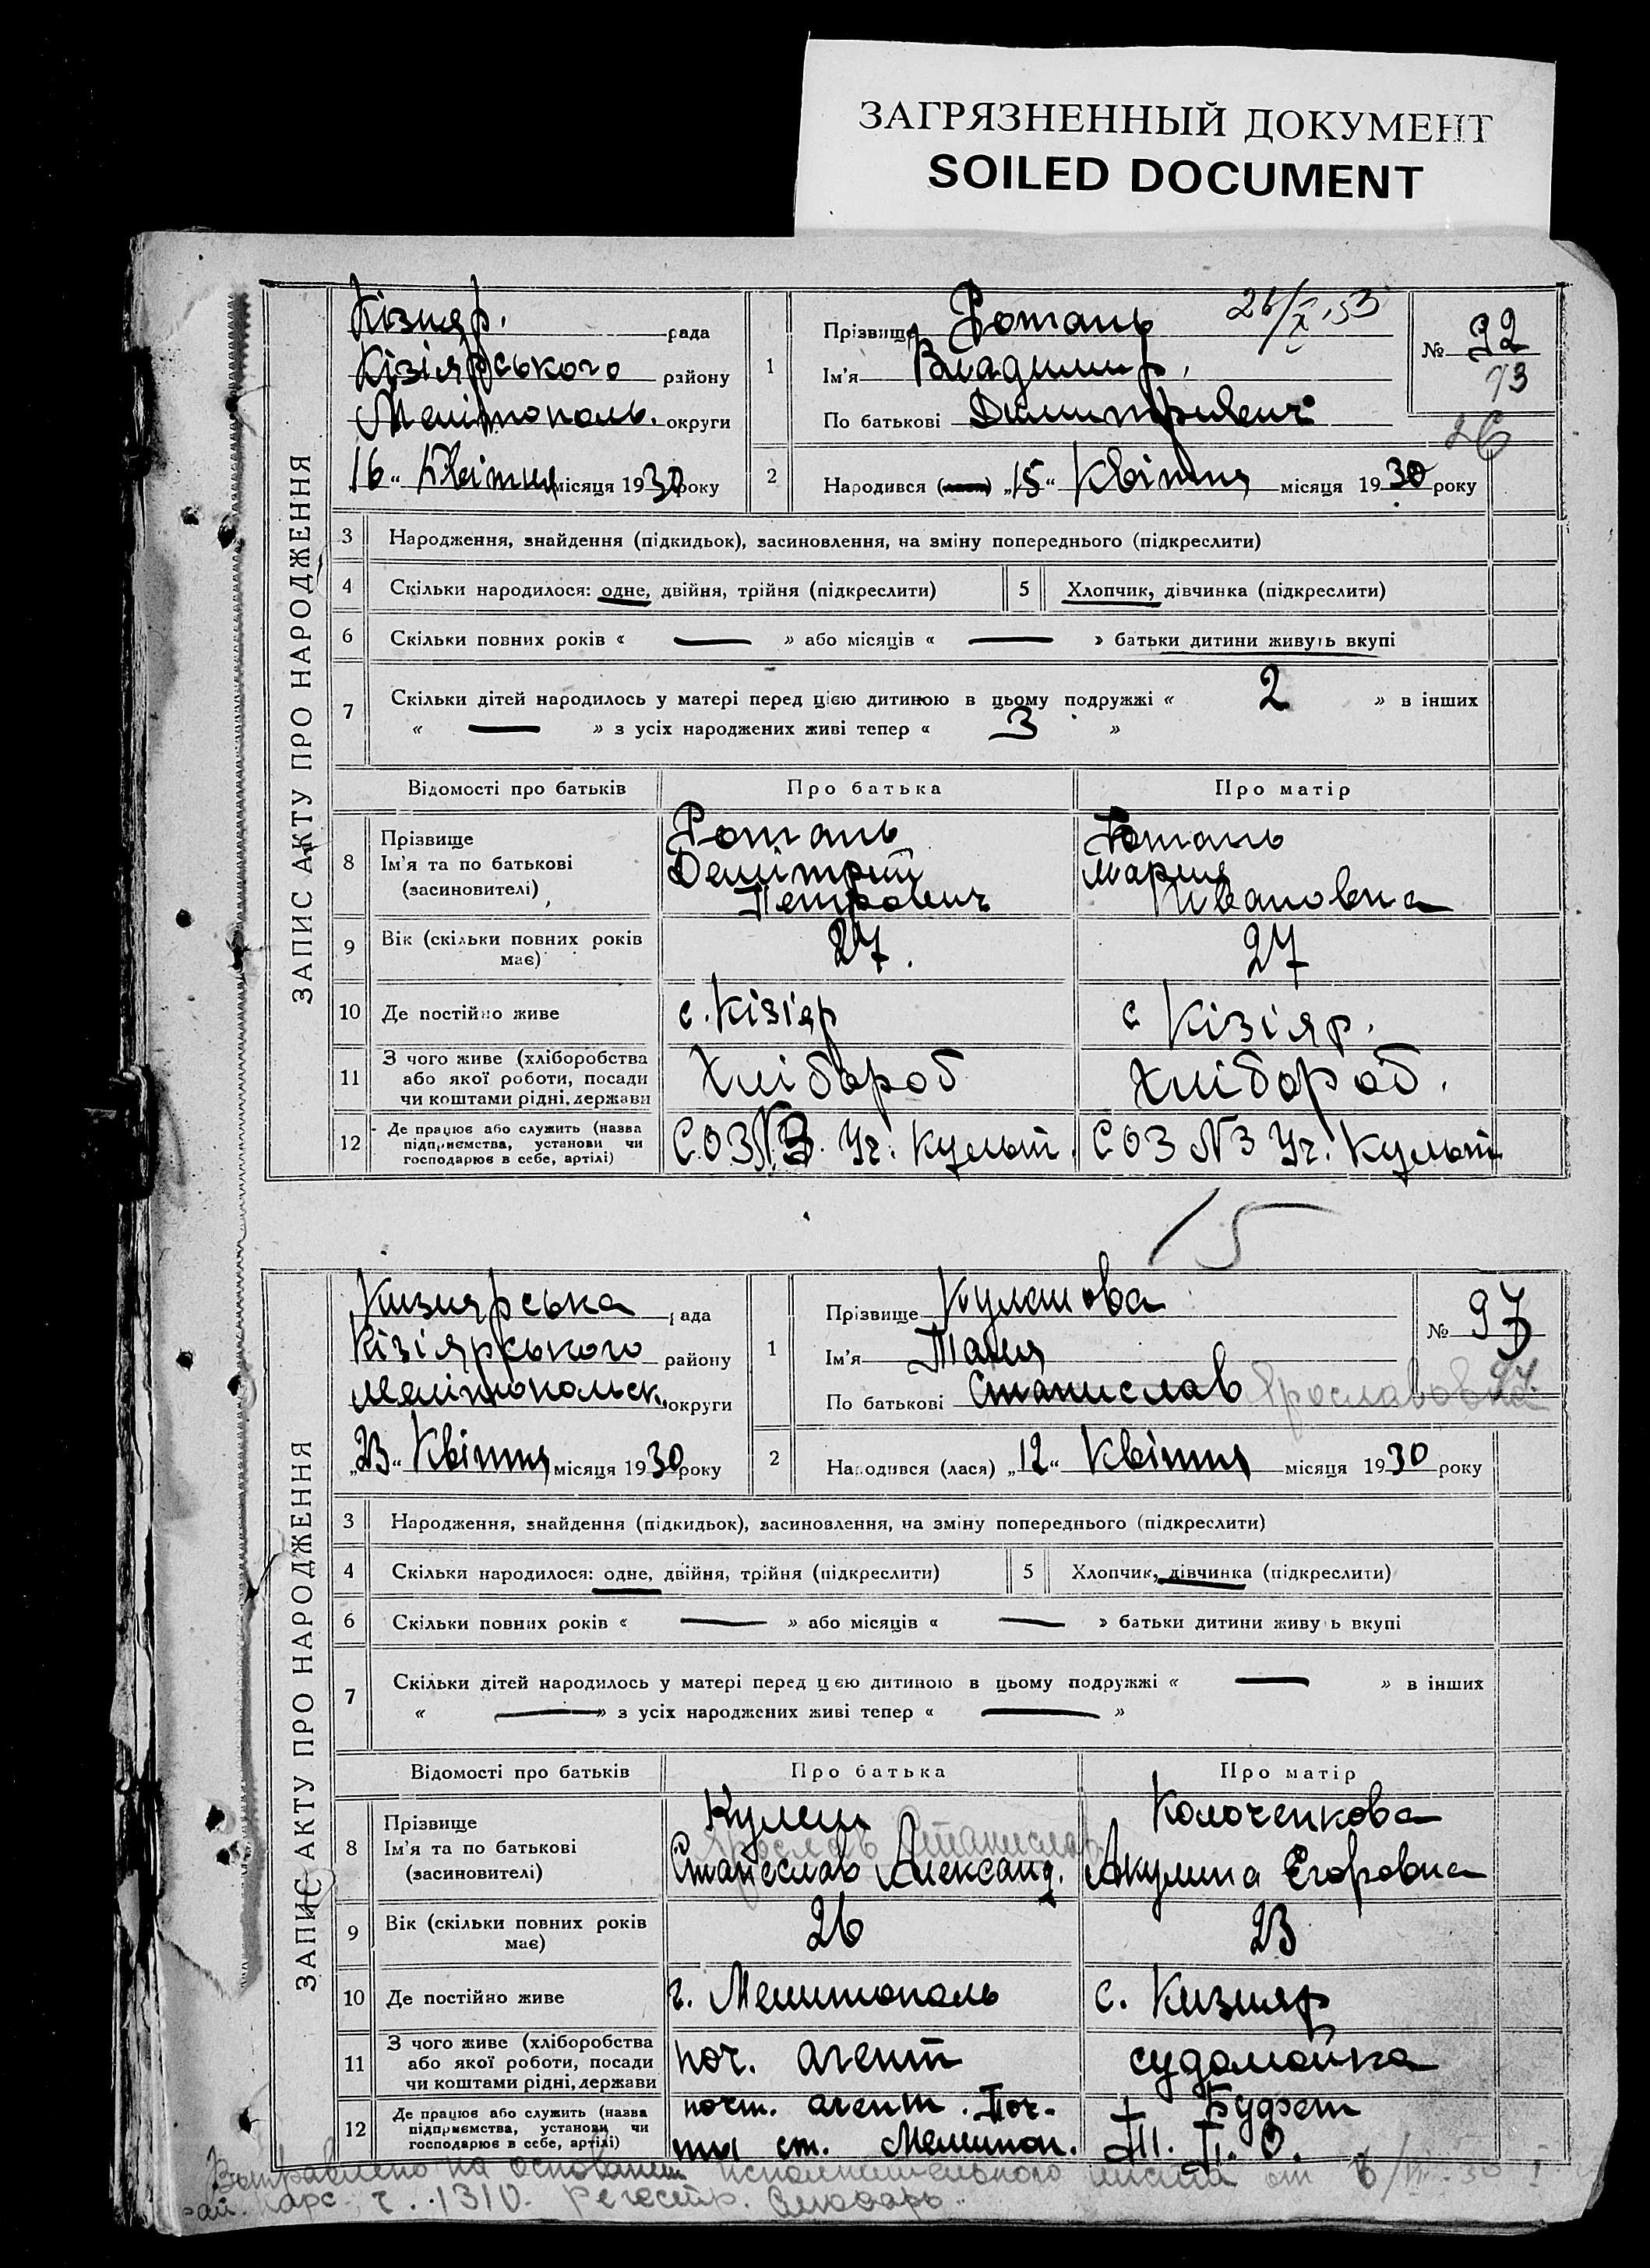 ЗАГРЯЗНЕННЫЙ ДОКУМЕНТ
SOILED DOCUMENT
ЗАПИС АКТУ ПРО НАРОДЖЕННЯ
Кізияр. рада
Кізіярського району
Мелітополь. округи
16 " Квітня місяця 1930 року
1 Прізвище Ротань
Ім'я Владимир,
По батькові Димитриевич
№ 92
93
2 Народився „15" Квітня місяця 1930 року
3 Народження, знайдення (підкидьок), засиновлення, на зміну попереднього (підкреслити)
4 Скільки народилося: одне, двійня, трійня (підкреслити) 5 Хлопчик, дівчинка (підкреслити)
6 Скільки повних років « — » або місяців « — » батьки дитини живуть вкупі
7 Скільки дітей народилось у матері перед цією дитиною в цьому подружжі « 2 » в інших
« — » з усіх народжених живі тепер « 3 »
Відомості про батьків Про батька Про матір
8 Прізвище Ротань Ротань
Ім'я та по батькові Демітрий Мария
(засиновителі) Петрович Ивановна
9 Вік (скільки повних років 27. 27
має)
10 Де постійно живе с. Кізіяр с Кізіяр.
11 З чого живе (хліборобства
або якої роботи, посади Хлібороб Хлібороб.
чи коштами рідні, держави
12 Де працює або служить (назва
підприємства, установи чи СОЗ №3. Уч. Культ. СОЗ N3 Уч. Культ
господарює в себе, артілі)
15
ЗАПИС АКТУ ПРО НАРОДЖЕННЯ
Кизиярська рада
Кізіярського району
Мелітопольск. округи
„23" Квітня місяця 1930 року
1 Прізвище
Ім'я Таня
По батькові Станислав Ярославовна
№ 97
97.
2 Народився (лася) „12" Квітня місяця 1930 року
3 Народження, знайдення (підкидьок), засиновлення, на зміну попереднього (підкреслити)
4 Скільки народилося: одне, двійня, трійня (підкреслити) 5 Хлопчик, дівчинка (підкреслити)
6 Скільки повних років « — » або місяців « — » батьки дитини живуть вкупі
7 Скільки дітей народилось у матері перед цією дитиною в цьому подружжі « — » в інших
« — » з усіх народжених живі тепер « — »
Відомості про батьків Про батька Про матір
8 Прізвище Колоченкова
Ім'я та по батькові Ярослав Станислав
(засиновителі) Станеслав Александ. Акулина Егоровна
9 Вік (скільки повних років 26 23
має)
10 Де постійно живе г. Мелитополь с. Кизияр
11 З чого живе (хліборобства
або якої роботи, посади поч. агент судомойка
чи коштами рідні, держави
12 Де працює або служить (назва почт. агент. Поч- Буфет
підприємства, установи чи
господарює в себе, артілі) ты ст. Мелитоп.
на основании исполнительного листа от
1310.